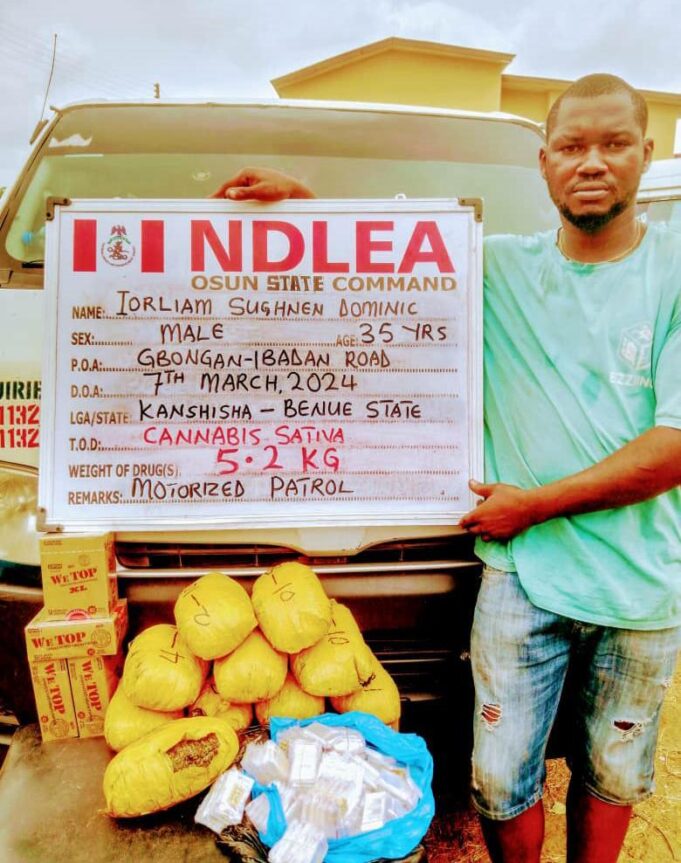 NDLEA
OSUN STATE COMMAND
NAME: IORLIAM SUGHNEN DOMINIC
SEX: MALE AGE: 35 YRS
P.O.A: GBONGAN-IBADAN ROAD
D.O.A: 7TH MARCH, 2024
LGA/STATE: KANSHISHA - BENUE STATE
T.O.D: CANNABIS SATIVA
WEIGHT OF DRUG(S): 5.2 KG
REMARKS: MOTORIZED PATROL
UIRIE
1132
1132
WE TOP
XL
WE TOP
WE TOP